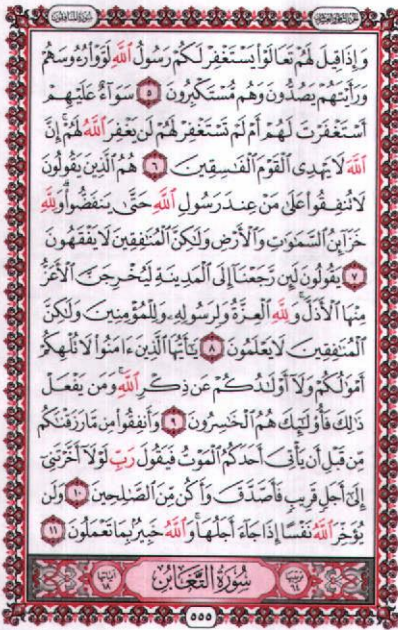 وَإِذَا قِيلَ لَهُمْ تَعَالَوْا۟ يَسْتَغْفِرْ لَكُمْ رَسُولُ ٱللَّهِ لَوَّوْا۟ رُءُوسَهُمْ
وَرَأَيْتَهُمْ يَصُدُّونَ وَهُم مُّسْتَكْبِرُونَ ٥ سَوَآءٌ عَلَيْهِمْ
أَسْتَغْفَرْتَ لَهُمْ أَمْ لَمْ تَسْتَغْفِرْ لَهُمْ لَن يَغْفِرَ ٱللَّهُ لَهُمْ ۚ إِنَّ
ٱللَّهَ لَا يَهْدِى ٱلْقَوْمَ ٱلْفَـٰسِقِينَ ٦ هُمُ ٱلَّذِينَ يَقُولُونَ
لَا تُنفِقُوا۟ عَلَىٰ مَنْ عِندَ رَسُولِ ٱللَّهِ حَتَّىٰ يَنفَضُّوا۟ ۗ وَلِلَّهِ
خَزَآئِنُ ٱلسَّمَـٰوَٰتِ وَٱلْأَرْضِ وَلَـٰكِنَّ ٱلْمُنَـٰفِقِينَ لَا يَفْقَهُونَ
٧ يَقُولُونَ لَئِن رَّجَعْنَآ إِلَى ٱلْمَدِينَةِ لَيُخْرِجَنَّ ٱلْأَعَزُّ
مِنْهَا ٱلْأَذَلَّ ۚ وَلِلَّهِ ٱلْعِزَّةُ وَلِرَسُولِهِۦ وَلِلْمُؤْمِنِينَ وَلَـٰكِنَّ
ٱلْمُنَـٰفِقِينَ لَا يَعْلَمُونَ ٨ يَـٰٓأَيُّهَا ٱلَّذِينَ ءَامَنُوا۟ لَا تُلْهِكُمْ
أَمْوَٰلُكُمْ وَلَآ أَوْلَـٰدُكُمْ عَن ذِكْرِ ٱللَّهِ ۚ وَمَن يَفْعَلْ
ذَٰلِكَ فَأُو۟لَـٰٓئِكَ هُمُ ٱلْخَـٰسِرُونَ ٩ وَأَنفِقُوا۟ مِن مَّا رَزَقْنَـٰكُم
مِّن قَبْلِ أَن يَأْتِىَ أَحَدَكُمُ ٱلْمَوْتُ فَيَقُولَ رَبِّ لَوْلَآ أَخَّرْتَنِىٓ
إِلَىٰٓ أَجَلٍ قَرِيبٍ فَأَصَّدَّقَ وَأَكُن مِّنَ ٱلصَّـٰلِحِينَ ١٠ وَلَن
يُؤَخِّرَ ٱللَّهُ نَفْسًا إِذَا جَآءَ أَجَلُهَا ۚ وَٱللَّهُ خَبِيرٌۢ بِمَا تَعْمَلُونَ ١١
سُورَةُ التَّغَابُنِ
٥٥٥